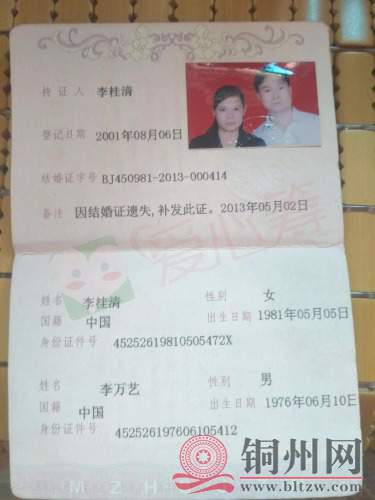 持证人 李桂清
登记日期 2001年08月06日
结婚证字号 BJ450981-2013-000414
备注 因结婚证遗失,补发此证。2013年05月02日
爱心筹
姓名 李桂清 性别 女
国籍 中国 出生日期 1981年05月05日
身份证件号 45252619810505472X
姓名 李万艺 性别 男
国籍 中国 出生日期 1976年06月10日
身份证件号 452526197606105412
铜州网
www.bltzw.com